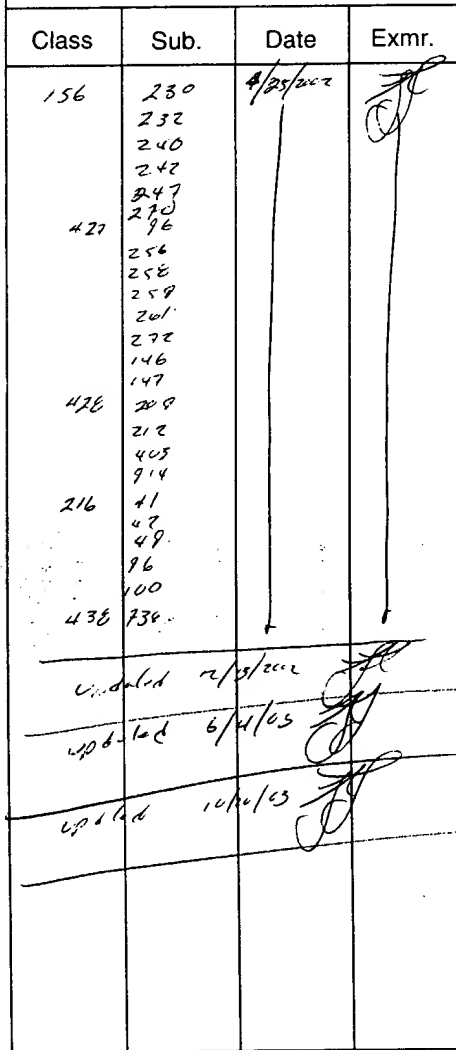 Class Sub. Date Exmr.
156 230 4/25/2002
232
240
242
247
270
427 96
256
258
259
261
272
146
147
428 209
212
403
914
216 41
42
49
96
100
438
updated
updated 6/4/03
updated